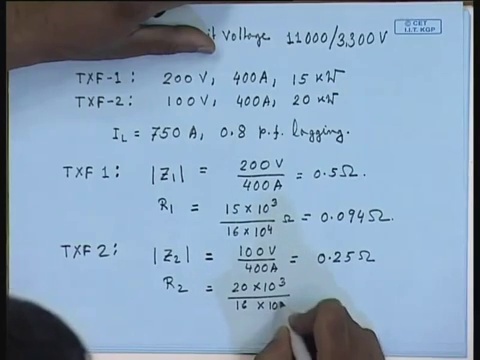 it Voltage 11000/3,300V
© CET
I.I.T. KGP
TXF-1: 200 V, 400A, 15 kW
TXF-2: 100V, 400A, 20 kW
IL = 750 A, 0.8 p.f. lagging.
TXF 1: |Z1| = 200 V / 400A = 0.5Ω.
R1 = 15 × 10³ / 16 × 10⁴ Ω = 0.094Ω.
TXF 2: |Z2| = 100V / 400A = 0.25Ω
R2 = 20 × 10³ / 16 × 10